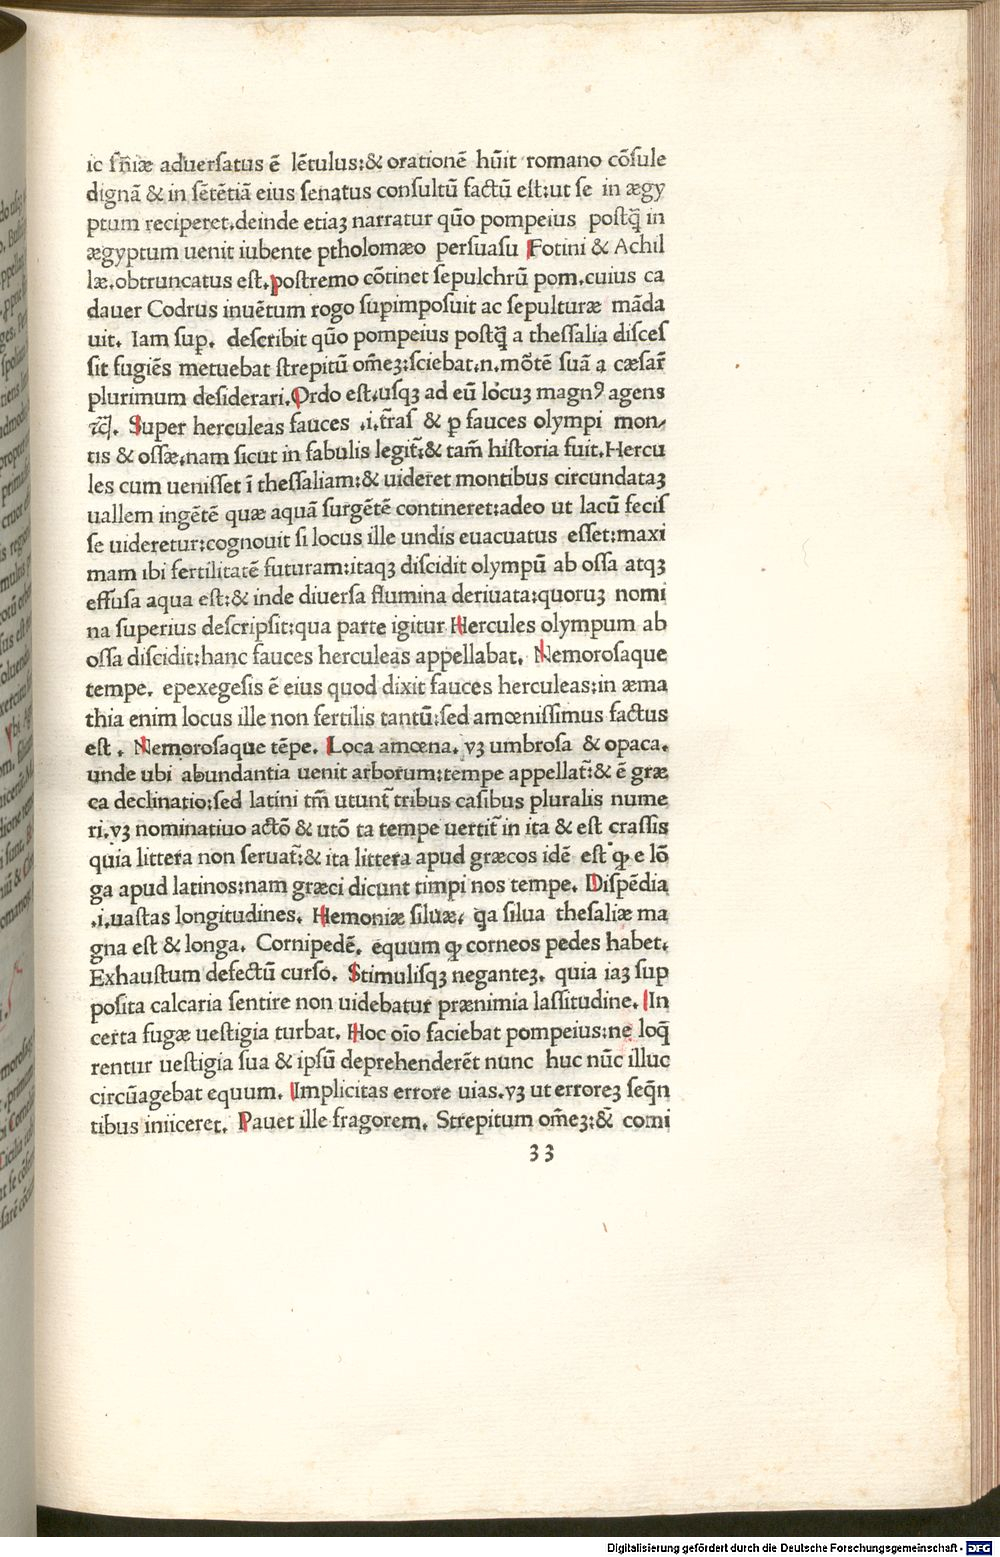 ic ſñiæ aduerſatus ē lētulus:& orationē hūit romano cōſule
dignā & in ſētētiā eius ſenatus conſultū factū eſt:ut ſe in ægy
ptum reciperet.deinde etiaꝫ narratur quō pompeius poſtq̄ in
ægyptum uenit iubente ptholomæo perſuaſu Fotini & Achil
læ.obtruncatus eſt.poſtremo cōtinet ſepulchrū pom.cuius ca
dauer Codrus inuētum rogo ſupimpoſuit ac ſepulturæ māda
uit. Iam ſup. deſcribit quō pompeius poſtq̄ a theſſalia diſceſ
ſit fugiēs metuebat ſtrepitū om̄eꝫ:ſciebat.n.mōtē ſuā a cæſar̄
plurimum deſiderari.Ordo eſt.uſqꝫ ad eū locuꝫ magnꝰ agens
⁊cꝭ. Super herculeas fauces .i.tr̄aſ & ꝑ fauces olympi mon-
tis & oſſæ.nam ſicut in fabulis legit̄:& tam̄ hiſtoria fuit.Hercu
les cum ueniſſet ī theſſaliam:& uideret montibus circundataꝫ
uallem ingētē quæ aquā ſurgētē contineret:adeo ut lacū feciſ
ſe uideretur:cognouit ſi locus ille undis euacuatus eſſet:maxi
mam ibi fertilitatē futuram:itaqꝫ diſcidit olympū ab oſſa atqꝫ
effuſa aqua eſt:& inde diuerſa flumina deriuata:quoruꝫ nomi
na ſuperius deſcripſit:qua parte igitur Hercules olympum ab
oſſa diſcidit:hanc fauces herculeas appellabat. Nemoroſaque
tempe. epexegeſis ē eius quod dixit fauces herculeas:in æma
thia enim locus ille non fertilis tantū:ſed amœniſſimus factus
eſt. Nemoroſaque tēpe. Loca amœna. uꝫ umbroſa & opaca.
unde ubi abundantia uenit arborum:tempe appellat̄:& ē græ
ca declinatio:ſed latini tm̄ utunt̄ tribus caſibus pluralis nume
ri.uꝫ nominatiuo actō & utō ta tempe uertit̄ in ita & eſt craſſis
quia littera non ſeruat̄:& ita littera apud græcos idē eſt ꝙ e lō
ga apud latinos:nam græci dicunt timpi nos tempe. Diſpēdia
.i.uaſtas longitudines. Hemoniæ ſiluæ. q̄a ſilua theſaliæ ma
gna eſt & longa. Cornipedē. equum ꝙ corneos pedes habet.
Exhauſtum defectū curſo. Stimuliſqꝫ neganteꝫ. quia iaꝫ ſup
poſita calcaria ſentire non uidebatur prænimia laſſitudine. In
certa fugæ ueſtigia turbat. Hoc oīo faciebat pompeius:ne loq̄
rentur ueſtigia ſua & ipſū deprehenderēt nunc huc nūc illuc
circūagebat equum. Implicitas errore uias.uꝫ ut erroreꝫ ſeq̄n
tibus iniiceret. Pauet ille fragorem. Strepitum om̄eꝫ:& comi
33
Digitalisierung gefördert durch die Deutsche Forschungsgemeinschaft - DFG